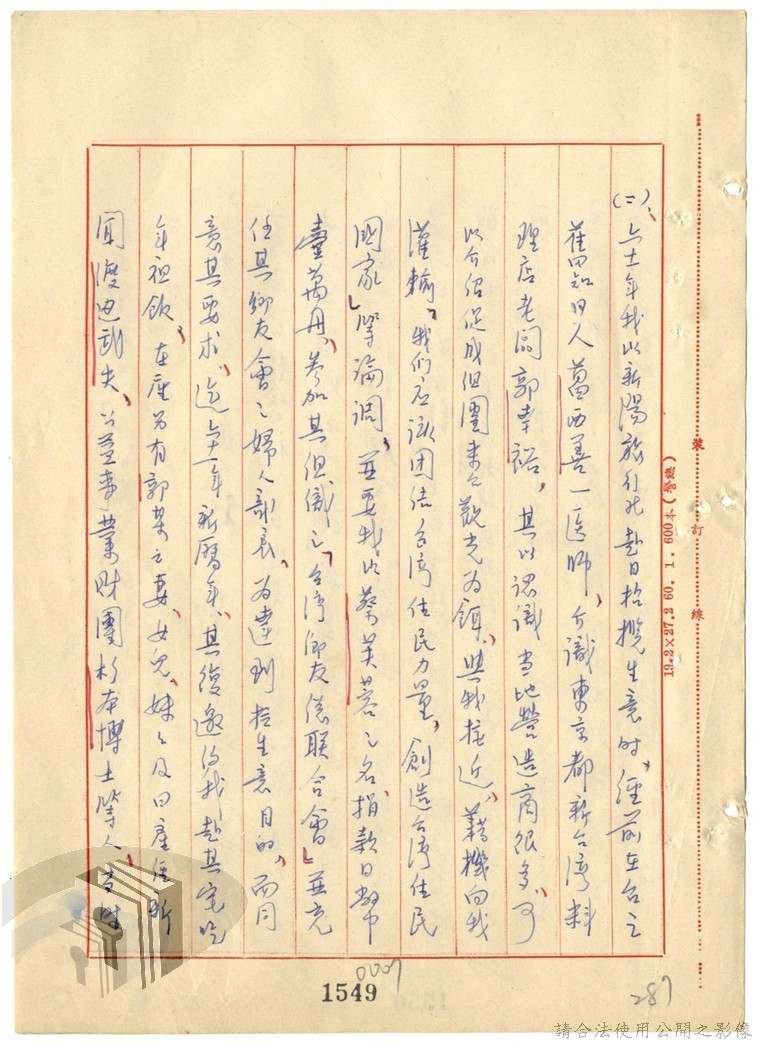 (二)、六十年我以新陽旅行社赴日招攬生意時，經前在台之
舊田知日人葛西善一医師，介識東京都新台湾料
理店老闆郭幸裕，其以認識当地營造商很多，可
以介紹促成組團来台觀光為餌，與我接近，藉機向我
灌輸「我们应該团结台湾住民力量，創造台湾住民
國家」等論調，並要我以蔡芙蓉之名，捐款日幣
壹萬円，參加其組織之「台湾鄉友信聯合會」並充
任其鄉友會之婦人部長，為達到拉生意目的，而同
意其要求，迄六十一年新曆年，其復邀约我赴其宅吃
年祖飯，在座另有郭某之妻、女兒、妹々及日產經新
聞渡边武夫、公益事業財團杉本博士等人，当時
裝訂線
19.2×27.2 60. 1. 600本(警總)
1549
0007
287
請合法使用公開之影像